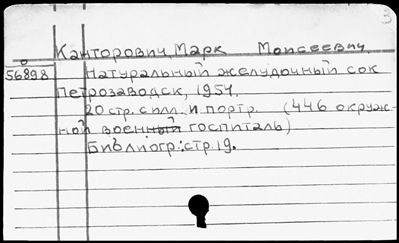 Канторович, Марк Моисеевич
56898 Натуральный желудочный сок
Петрозаводск, 1954.
20 стр. с илл. и портр. (446 окруж-
ной военный госпиталь)
Библиогр.: стр. 19.